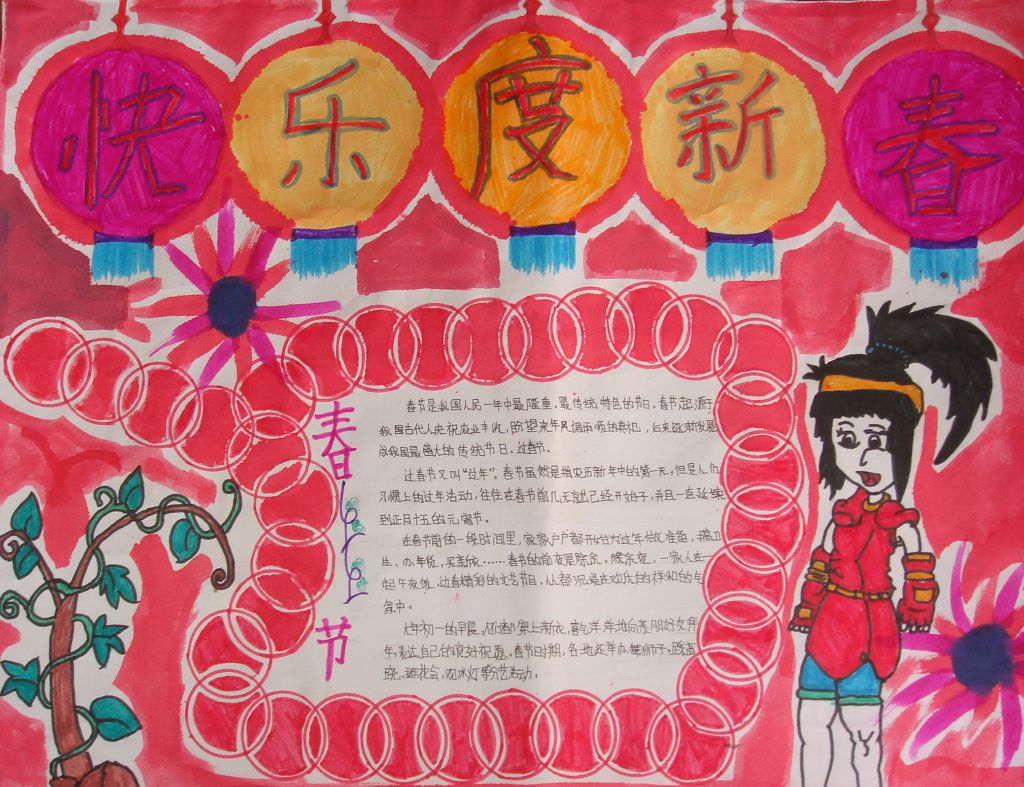 快乐度新春
春节
春节是我国人民一年中最隆重、最传统特色的节日，春节起源于
我国古代人庆祝农业丰收，盼望来年风调雨顺的典礼，后来逐渐发展
成我国最盛大的传统节日，过春节。
过春节又叫“过年”。春节虽然是指农历新年中的第一天，但是人们
习惯上的过年活动，往往在春节前几天就已经开始了，并且一直延续
到正月十五的元宵节。
在春节前的一段时间里，家家户户都开始为过年做准备，搞卫
生、办年货，买新衣……春节的前夜是除夕，除夕夜，一家人在一
起午夜饭，边看精彩的文艺节目，从都沉浸在欢乐的祥和的气
氛中。
大年初一的早晨，人们都穿上新衣，喜气洋洋地向亲朋好友拜
年，表达自己的良好祝愿，春节时期，各地还举办舞狮子，踩高
跷，逛花会，观冰灯等活动。